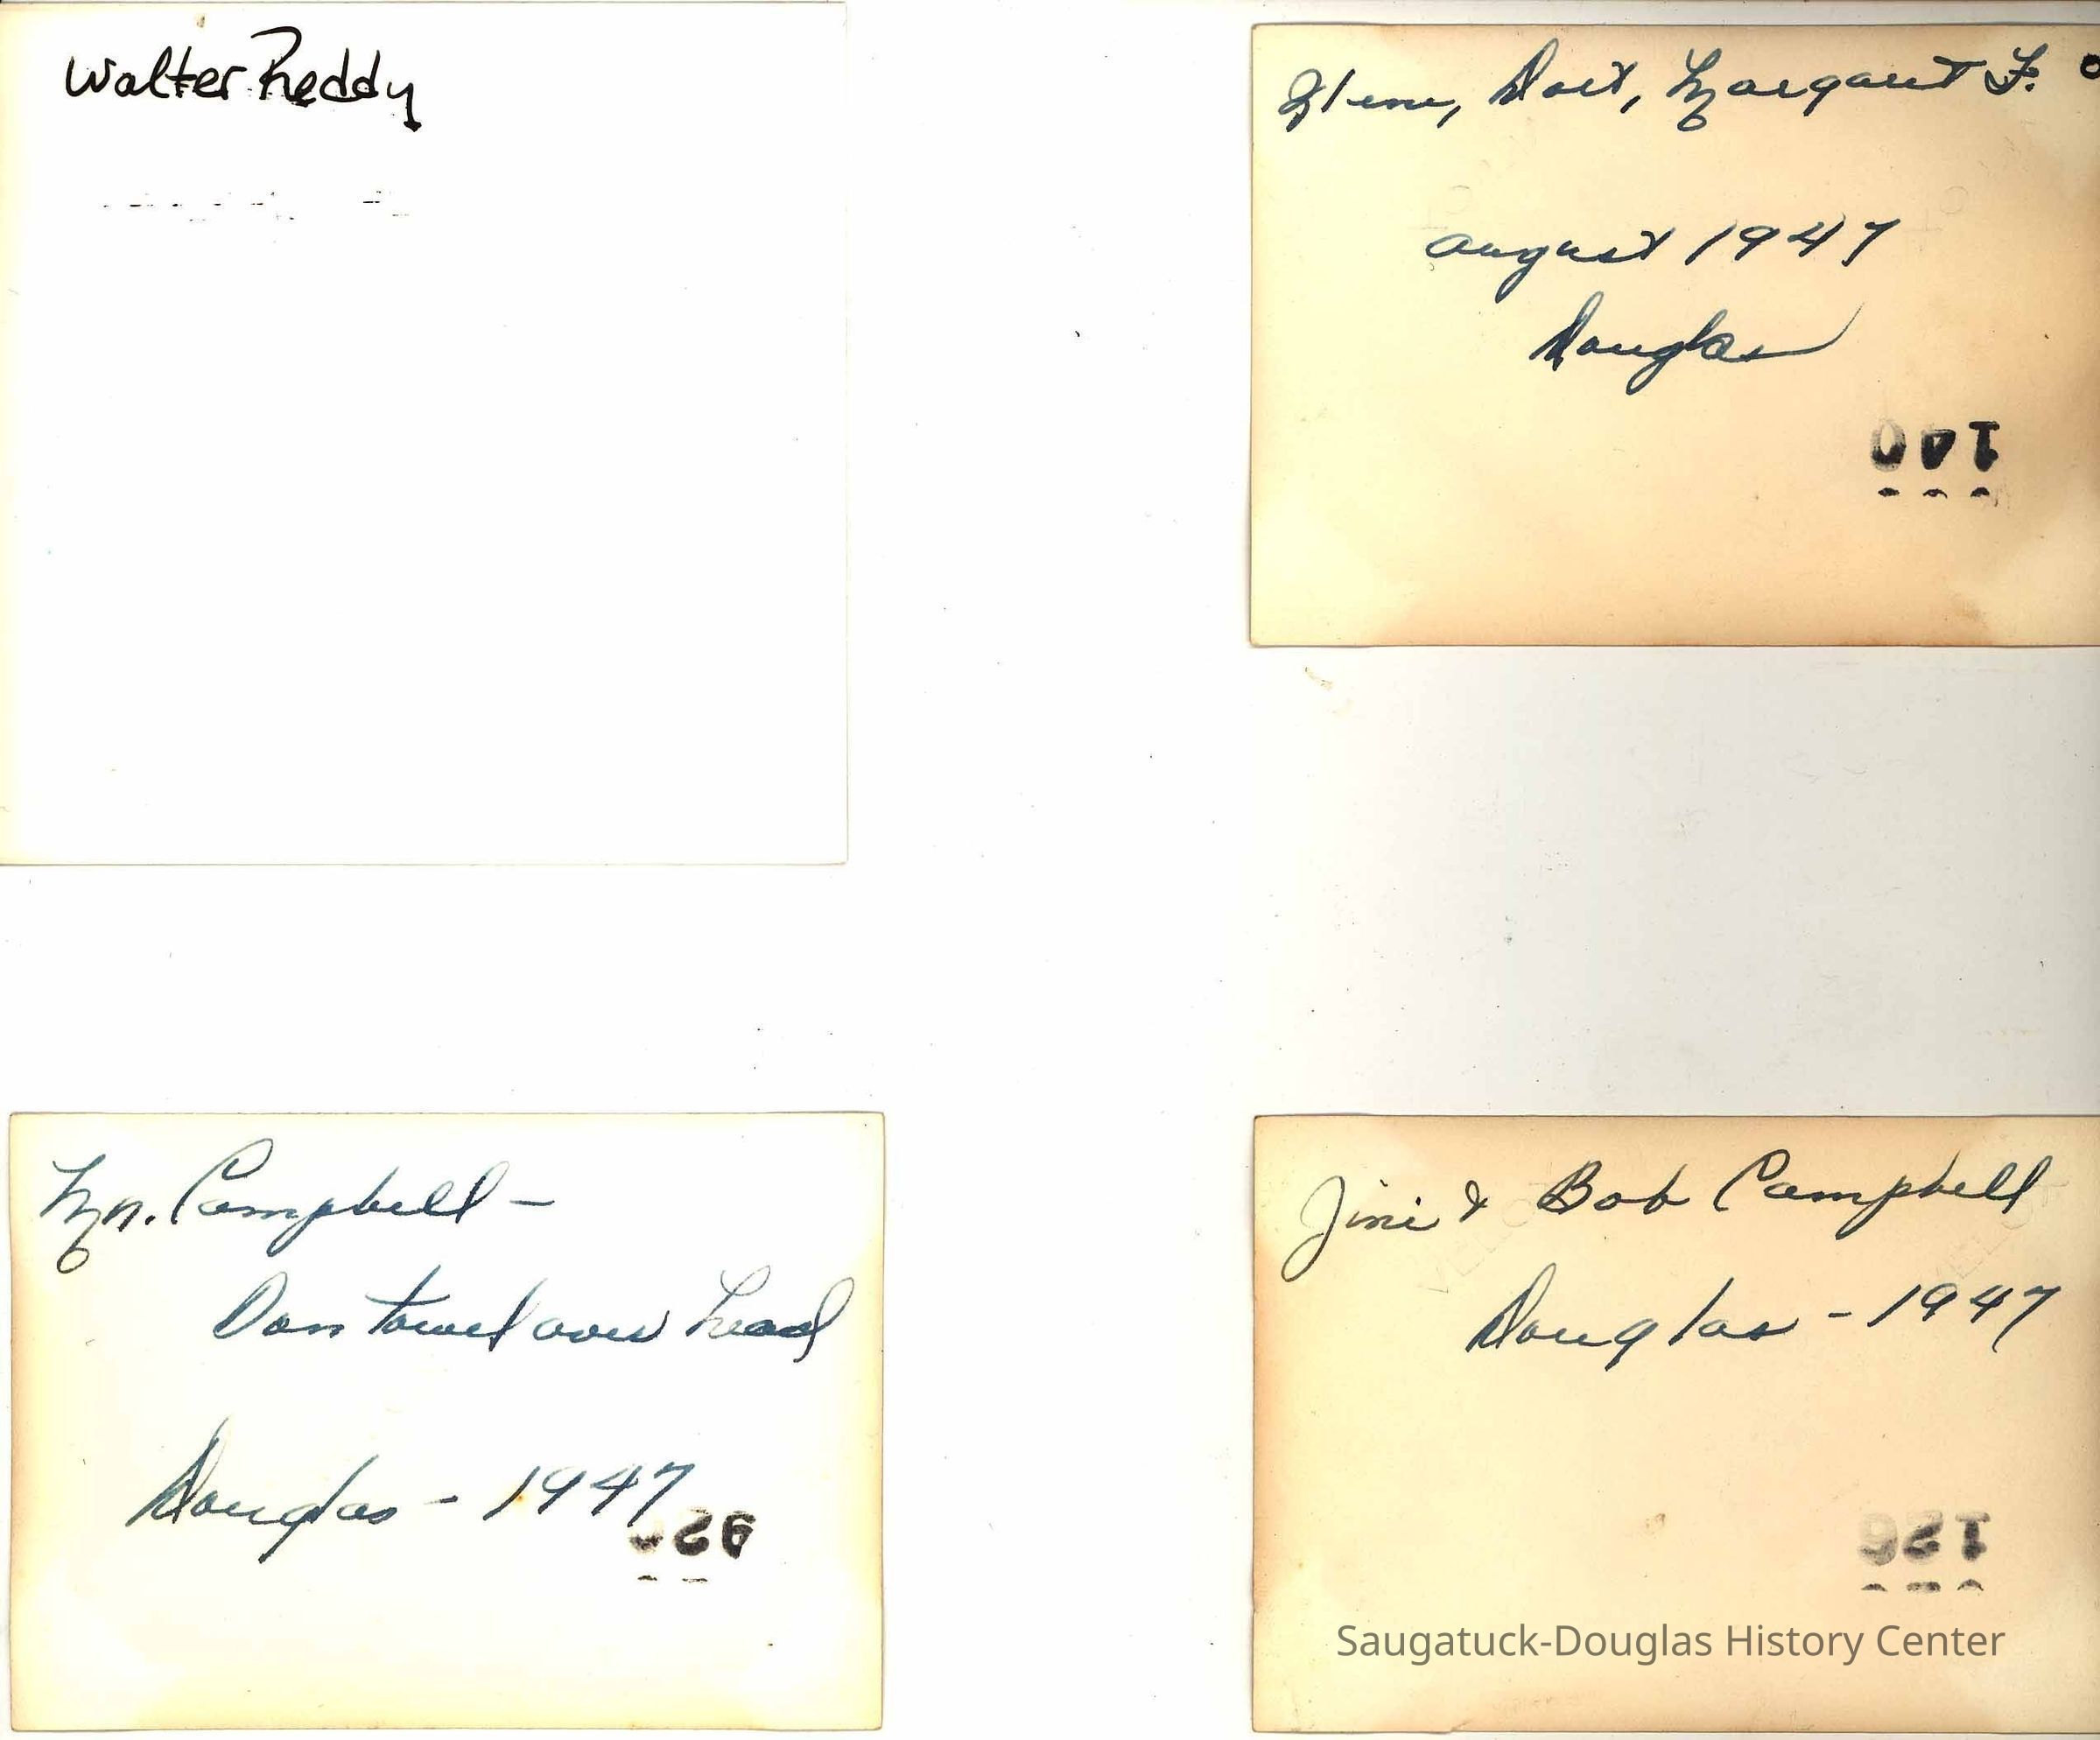 Walter Reddy
Ilene, Dort, Margaret F.
August 1947
Douglas
140
Mr. Campbell -
Don towel over head
Douglas - 1947
92
Jini & Bob Campbell
Douglas - 1947
126
VELOX
Saugatuck-Douglas History Center